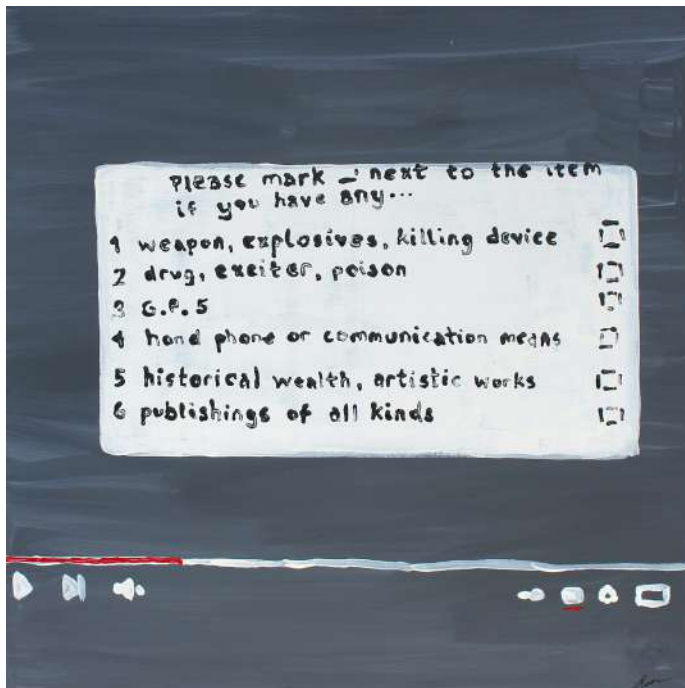 please mark _' next to the item
if you have any...
1 weapon, explosives, killing device
2 drug, exciter, poison
3 G.P.S
4 hand phone or communication means
5 historical wealth, artistic works
6 publishings of all kinds